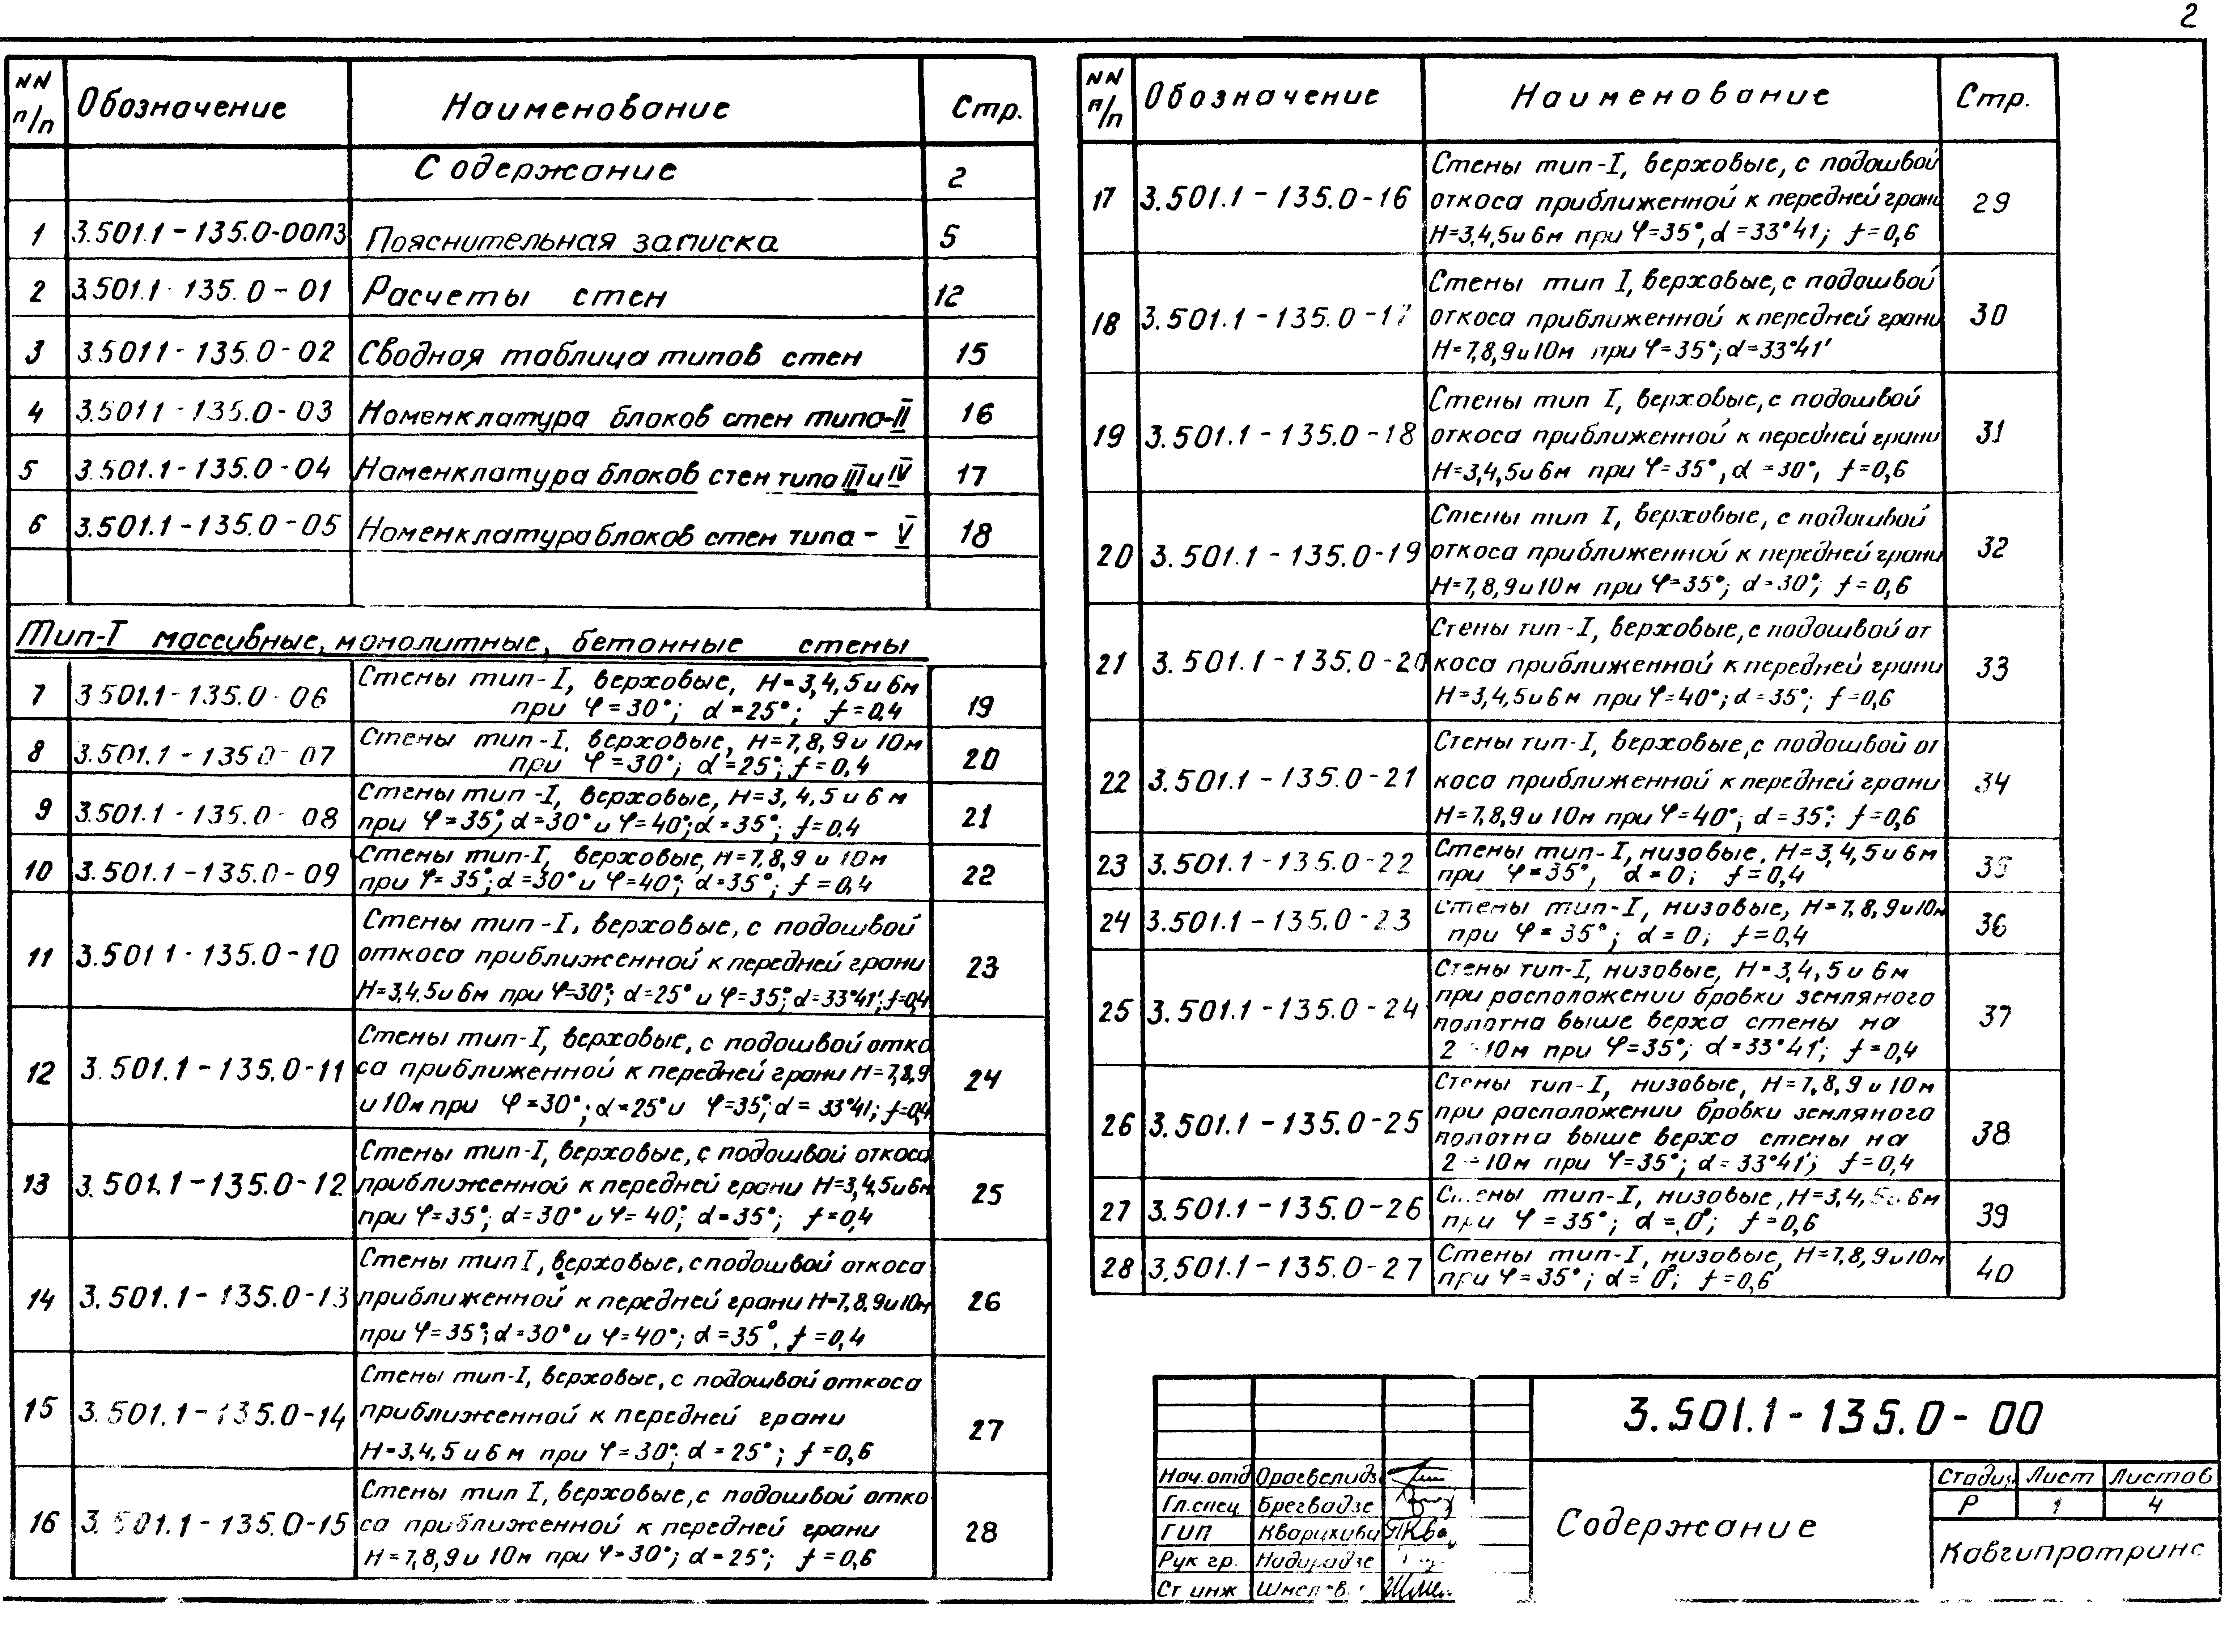 2
NN п/п Обозначение Наименование Стр.
Содержание 2
1 3.501.1-135.0-00ПЗ Пояснительная записка 5
2 3.501.1-135.0-01 Расчеты стен 12
3 3.501.1-135.0-02 Сводная таблица типов стен 15
4 3.501.1-135.0-03 Номенклатура блоков стен типа-II 16
5 3.501.1-135.0-04 Номенклатура блоков стен типа III и IV 17
6 3.501.1-135.0-05 Номенклатура блоков стен типа - V 18
Тип-I массивные, монолитные, бетонные стены
7 3.501.1-135.0-06 Стены тип-I, верховые, H=3,4,5 и 6м
при φ=30°; α=25°; f=0,4 19
8 3.501.1-135.0-07 Стены тип-I, верховые, H=7,8,9 и 10м
при φ=30°; α=25°; f=0,4 20
9 3.501.1-135.0-08 Стены тип-I, верховые, H=3,4,5 и 6м
при φ=35°; α=30° и φ=40°; α=35°; f=0,4 21
10 3.501.1-135.0-09 Стены тип-I, верховые, H=7,8,9 и 10м
при φ=35°; α=30° и φ=40°; α=35°; f=0,4 22
11 3.501.1-135.0-10 Стены тип-I, верховые, с подошвой
откоса приближенной к передней грани
H=3,4,5 и 6м при φ=30°; α=25° и φ=35°; α=33°41'; f=0,4 23
12 3.501.1-135.0-11 Стены тип-I, верховые, с подошвой отко
са приближенной к передней грани H=7,8,9
и 10м при φ=30°; α=25° и φ=35°; α=33°41; f=0,4 24
13 3.501.1-135.0-12 Стены тип-I, верховые, с подошвой откоса
приближенной к передней грани H=3,4,5 и 6м
при φ=35°; α=30° и φ=40°; α=35°; f=0,4 25
14 3.501.1-135.0-13 Стены тип I, верховые, с подошвой откоса
приближенной к передней грани H=7,8,9 и 10м
при φ=35°; α=30° и φ=40°; α=35°, f=0,4 26
15 3.501.1-135.0-14 Стены тип-I, верховые, с подошвой откоса
приближенной к передней грани
H=3,4,5 и 6м при φ=30°; α=25°; f=0,6 27
16 3.501.1-135.0-15 Стены тип I, верховые, с подошвой отко
са приближенной к передней грани
H=7,8,9 и 10м при φ=30°; α=25°; f=0,6 28
NN п/п Обозначение Наименование Стр.
17 3.501.1-135.0-16 Стены тип-I, верховые, с подошвой
откоса приближенной к передней грани
H=3,4,5 и 6м при φ=35°, α=33°41; f=0,6 29
18 3.501.1-135.0-17 Стены тип I, верховые, с подошвой
откоса приближенной к передней грани
H=7,8,9 и 10м при φ=35°; α=33°41' 30
19 3.501.1-135.0-18 Стены тип I, верховые, с подошвой
откоса приближенной к передней грани
H=3,4,5 и 6м при φ=35°, α=30°, f=0,6 31
20 3.501.1-135.0-19 Стены тип I, верховые, с подошвой
откоса приближенной к передней грани
H=7,8,9 и 10м при φ=35°; α=30°; f=0,6 32
21 3.501.1-135.0-20 Стены тип-I, верховые, с подошвой от
коса приближенной к передней грани
H=3,4,5 и 6м при φ=40°; α=35°; f=0,6 33
22 3.501.1-135.0-21 Стены тип-I, верховые, с подошвой от
коса приближенной к передней грани
H=7,8,9 и 10м при φ=40°; α=35°; f=0,6 34
23 3.501.1-135.0-22 Стены тип-I, низовые, H=3,4,5 и 6м
при φ=35°, α=0; f=0,4 35
24 3.501.1-135.0-23 Стены тип-I, низовые, H=7,8,9 и 10м
при φ=35°; α=0; f=0,4 36
25 3.501.1-135.0-24 Стены тип-I, низовые, H=3,4,5 и 6м
при расположении бровки земляного
полотна выше верха стены на
2÷10м при φ=35°; α=33°41'; f=0,4 37
26 3.501.1-135.0-25 Стены тип-I, низовые, H=7,8,9 и 10м
при расположении бровки земляного
полотна выше верха стены на
2÷10м при φ=35°; α=33°41'; f=0,4 38
27 3.501.1-135.0-26 Стены тип-I, низовые, H=3,4,5и 6м
при φ=35°; α=0°; f=0,6 39
28 3.501.1-135.0-27 Стены тип-I, низовые, H=7,8,9 и 10м
при φ=35°; α=0°; f=0,6 40
3.501.1-135.0-00
Нач.отд
Гл.спец Брегвадзе
ГИП
Рук гр. Надирадзе
Ст инж
Содержание
Стадия Лист Листов
Р 1 4
Кавгипротранс